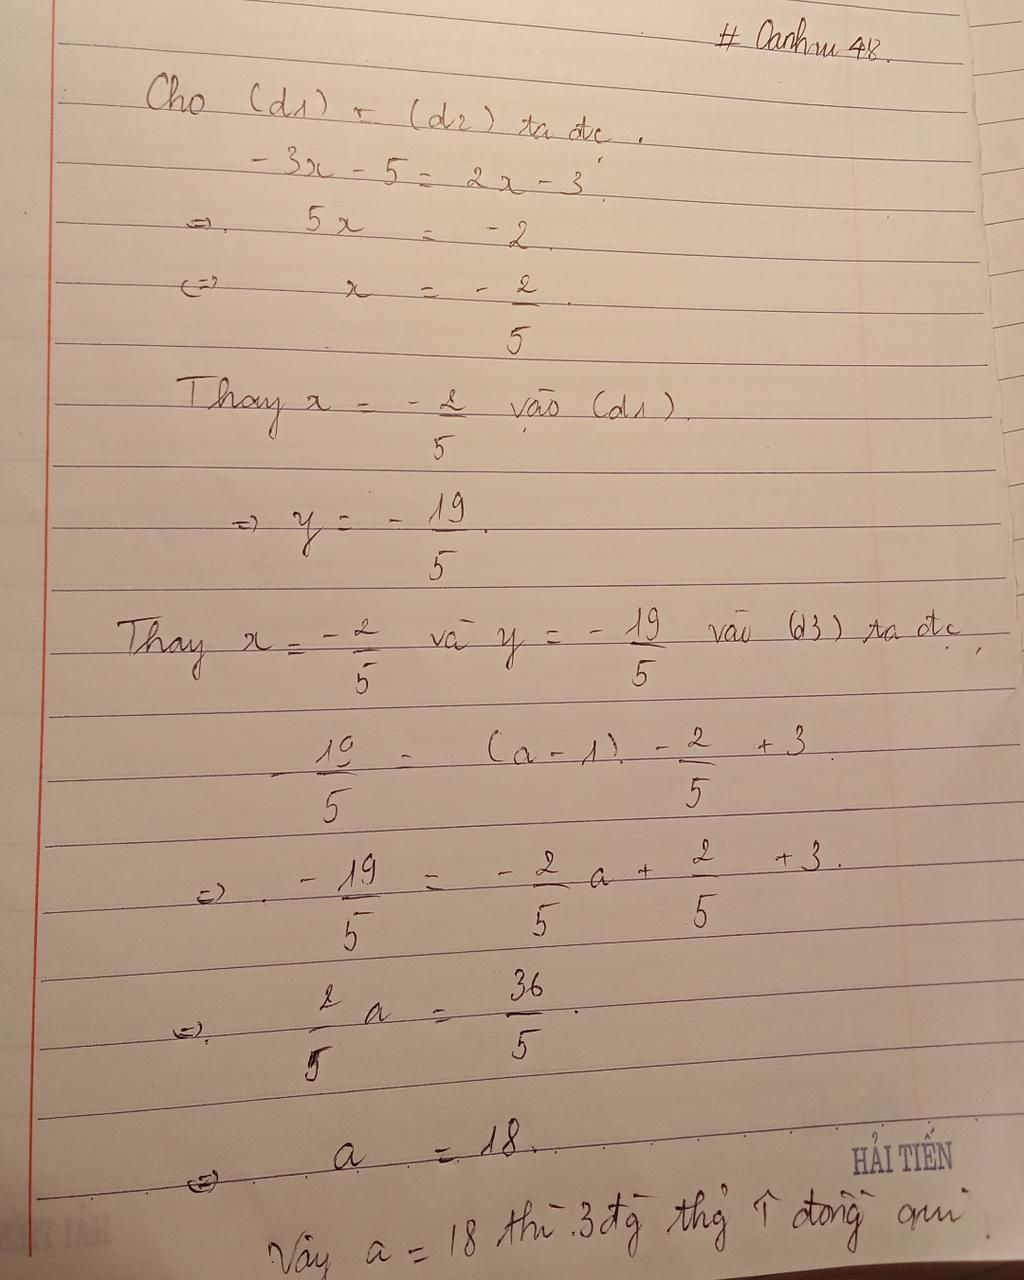 # Oanhm 48.
Cho (d1) = (d2) ta đc.
-3x - 5 = 2x - 3
=> 5x = -2.
<=> x = - 2/5.
Thay x = - 2/5 vào (d1).
=> y = - 19/5.
Thay x = - 2/5 và y = - 19/5 vào (d3) ta đc,
- 19/5 = (a - 1). - 2/5 + 3.
=> - 19/5 = - 2/5 a + 2/5 + 3.
<=> 2/5 a = 36/5.
<=> a = 18.
HẢI TIẾN
Vậy a = 18 thì 3 đg thg đồng qui.